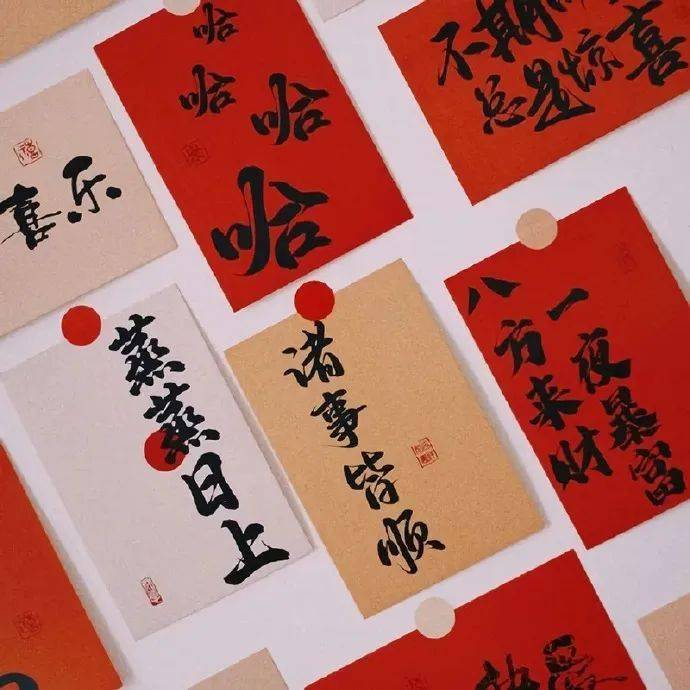 哈
哈
哈
哈
不期而
总是惊喜
喜乐
蒸蒸日上
诸事皆顺
一夜暴富
八方来财
热爱